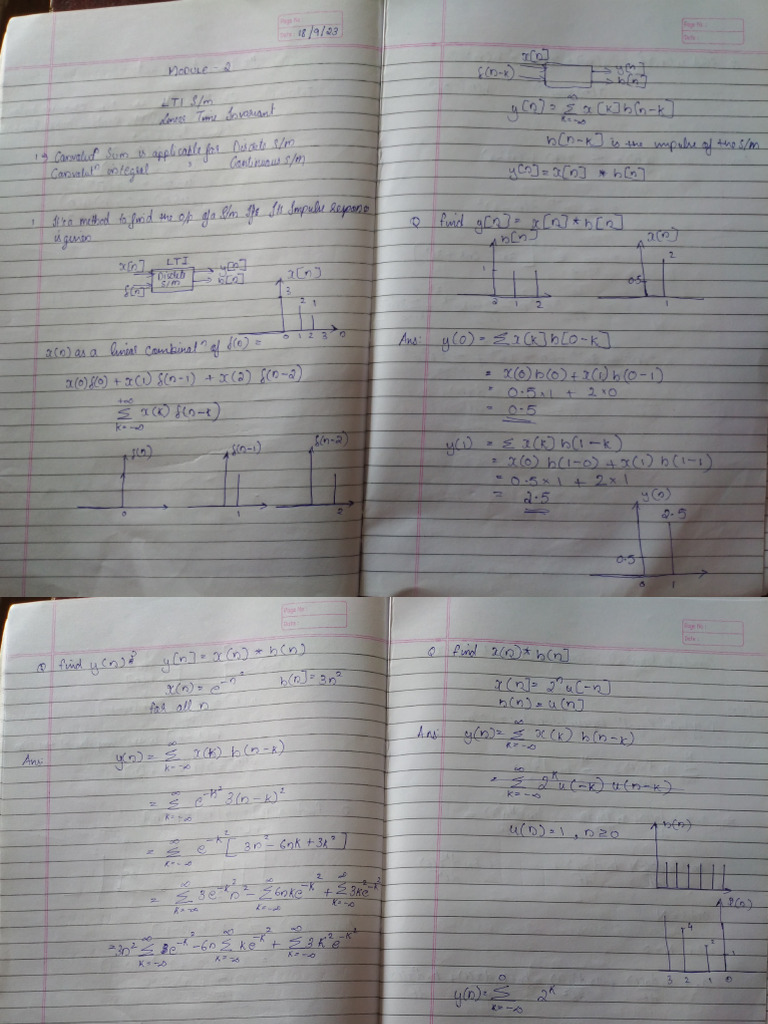 Page No:
Date: 18/9/23
Module-2
LTI S/m
Linear Time Invariant
Convolutⁿ Sum is applicable for Discrete S/m
Convolutⁿ integral " Continuous S/m
It's a method to find the o/p of a S/m if its Impulse Response
is given
x[n] LTI y[n]
Discrete
δ[n] S/m h[n]
x[n]
3
2 1
0 1 2 3 n
x(n) as a linear combinatⁿ of δ(n) =
x(0)δ(0) + x(1) δ(n-1) + x(2) δ(n-2)
+∞
Σ x(k) δ(n-k)
k=-∞
δ(n) δ(n-1) δ(n-2)
0 1 2
Page No:
Date:
x[n]
δ(n-k) y[n]
h[n]
y[n] = Σ x[k] h[n-k]
k=-∞
h[n-k] is the impulse of the S/m
y[n] = x[n] * h[n]
Q find y[n] = x[n] * h[n]
h[n] x[n]
1 2
0.5
0 1 2 1
Ans: y(0) = Σ x[k] h[0-k]
= x(0) h(0) + x(1) h(0-1)
= 0.5×1 + 2×0
= 0.5
y(1) = Σ x(k) h(1-k)
= x(0) h(1-0) + x(1) h(1-1)
= 0.5×1 + 2×1
= 2.5
y(n)
2.5
0.5
0 1
Page No:
Date:
Q find y(n)? y[n] = x(n) * h(n)
x(n) = e^-n² h[n] = 3n²
for all n
Ans: y(n) = ∞Σk=-∞ x(k) h(n-k)
= ∞Σk=-∞ e^-k² 3(n-k)²
= ∞Σk=-∞ e^-k² [3n² - 6nk + 3k²]
= ∞Σk=-∞ 3e^-k² n² - ∞Σk=-∞ 6nke^-k² + ∞Σk=-∞ 3k²e^-k²
= 3n² ∞Σk=-∞ e^-k² - 6n ∞Σk=-∞ ke^-k² + ∞Σk=-∞ 3k²e^-k²
Page No:
Date:
Q find x(n) * h[n]
x[n] = 2ⁿ u[-n]
h(n) = u[n]
Ans: y(n) = ∞Σk=-∞ x(k) h(n-k)
= ∞Σk=-∞ 2^k u(-k) u(n-k)
u(n) = 1, n≥0
h(n)
4
3 2 1 0
y(n) = 0Σk=-∞ 2^k